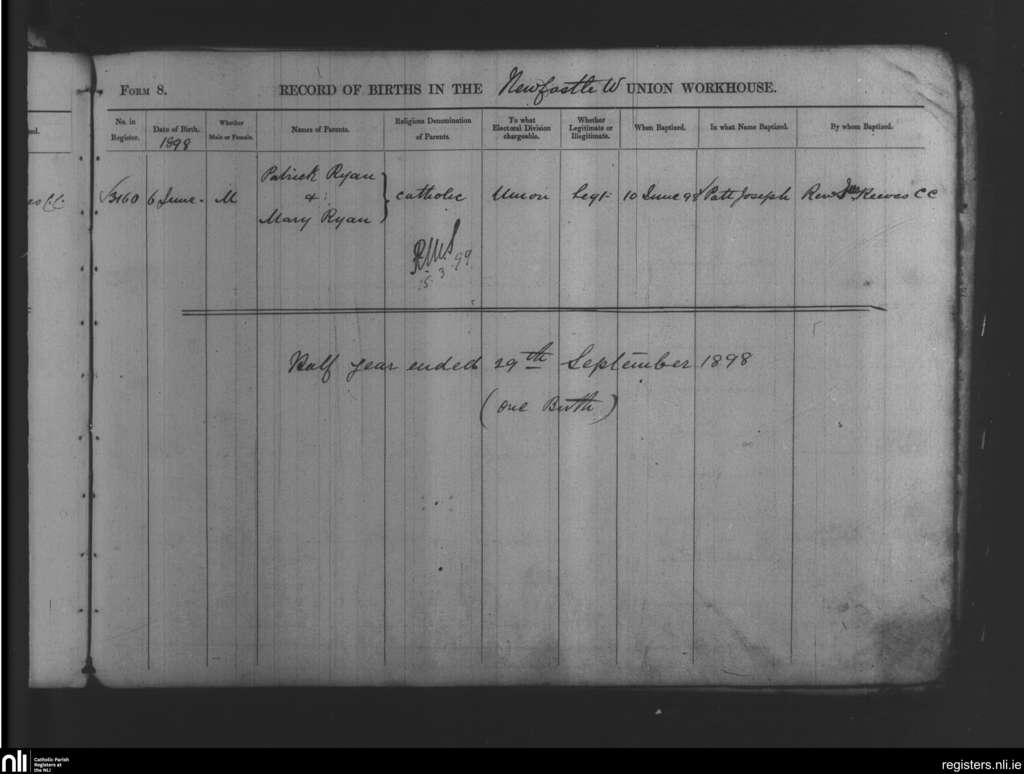 FORM 8. RECORD OF BIRTHS IN THE Newcastle W UNION WORKHOUSE.
No. in Register. Date of Birth. Whether Male or Female. Names of Parents. Religious Denomination of Parents. To what Electoral Division chargeable. Whether Legitimate or Illegitimate. When Baptized. In what Name Baptized. By whom Baptized.
1898
Patrick Ryan
3160 6 June M & catholic Union Legt 10 June 98 Patk Joseph Rev Reeves CC
Mary Ryan
RMS
15.3.99
Half year ended 29th September 1898
(one Birth)
nli Catholic Parish
Registers at
the NLI
registers.nli.ie